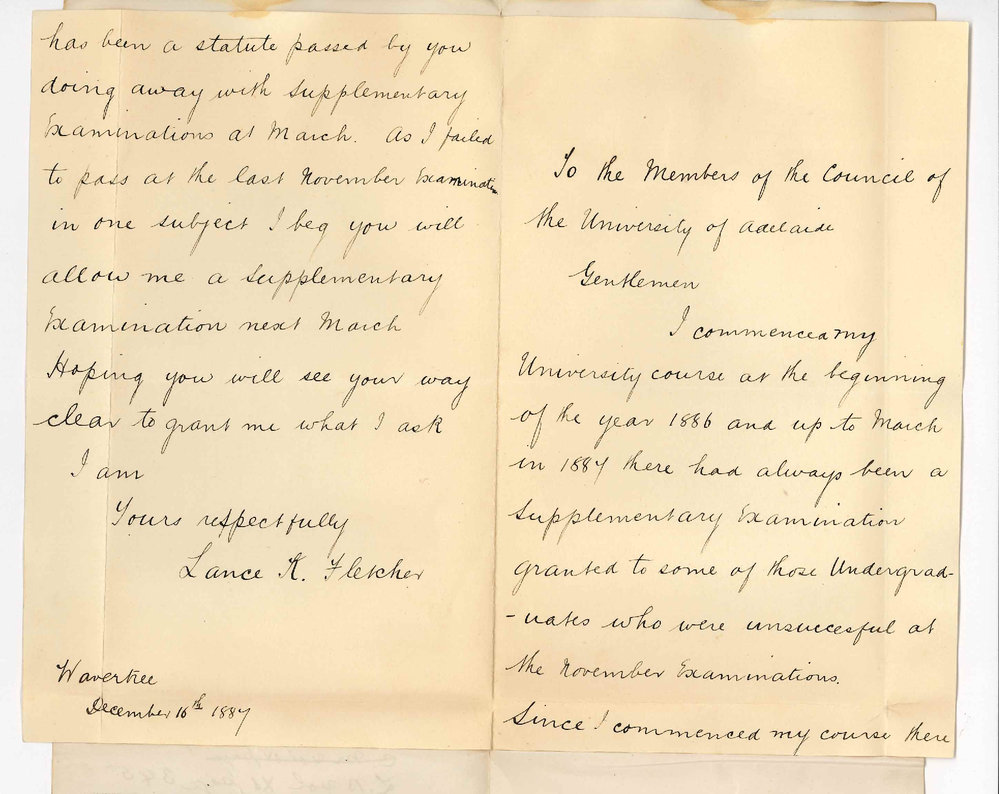 To the Members of the Council of
the University of Adelaide
Gentlemen
I commenced my
University course at the beginning
of the year 1886 and up to March
in 1887 there had always been a
Supplementary Examination
granted to some of those Undergrad-
-uates who were unsuccesful at
the November Examinations.
Since I commenced my course there
has been a statute passed by you
doing away with Supplementary
Examinations at March. As I failed
to pass at the last November Examination
in one subject I beg you will
allow me a Supplementary
Examination next March
Hoping you will see your way
clear to grant me what I ask
I am
Yours respectfully
Lance K. Fletcher
Wavertree
December 16th 1887